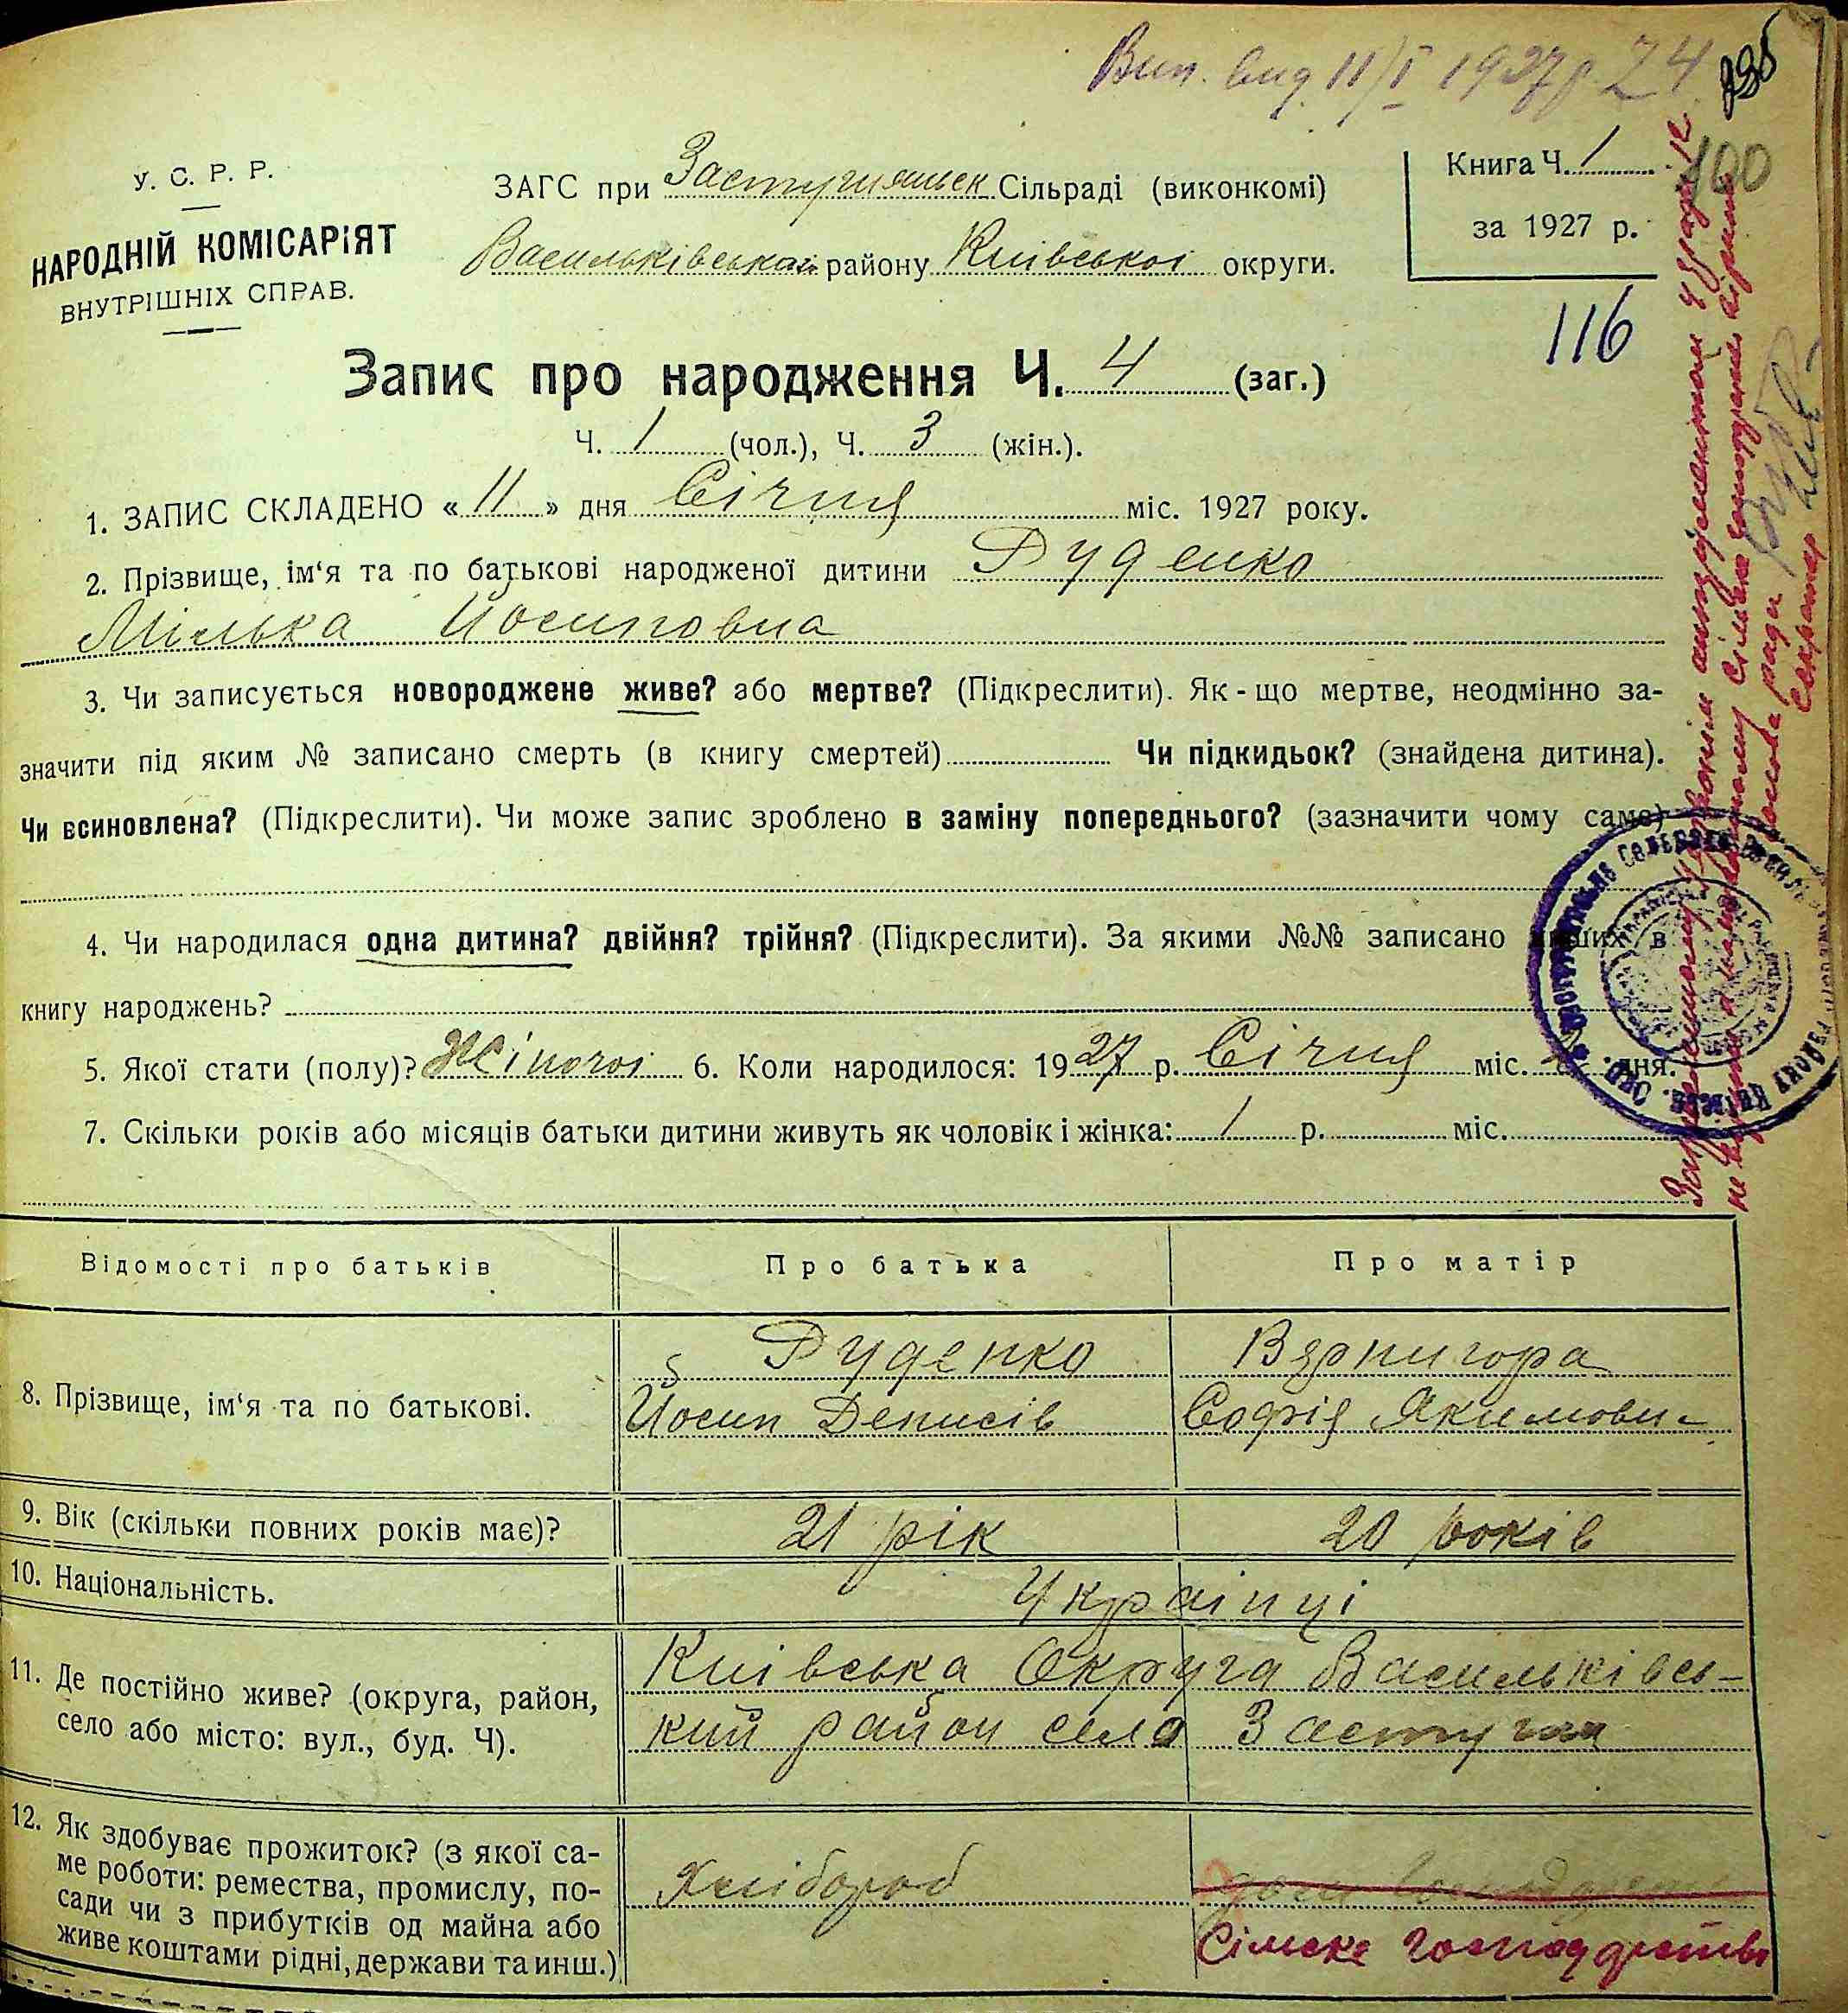 Вип. вид. 11/I 1927 р. Z 4
100
У. С. Р. Р.
НАРОДНІЙ КОМІСАРІЯТ
ВНУТРІШНІХ СПРАВ.
ЗАГС при Застугнянськ Сільраді (виконкомі)
Васильківськ району Київської округи.
Книга Ч. 1
за 1927 р.
116
Запис про народження Ч. 4 (заг.)
Ч. 1 (чол.), Ч. 3 (жін.).
1. ЗАПИС СКЛАДЕНО « 11 » дня Січня міс. 1927 року.
2. Прізвище, ім‘я та по батькові народженої дитини Руденко
Мілька Йосиповна
3. Чи записується новороджене живе? або мертве? (Підкреслити). Як-що мертве, неодмінно за-
значити під яким № записано смерть (в книгу смертей) Чи підкидьок? (знайдена дитина).
Чи всиновлена? (Підкреслити). Чи може запис зроблено в заміну попереднього? (зазначити чому саме)
4. Чи народилася одна дитина? двійня? трійня? (Підкреслити). За якими №№ записано инших в
книгу народжень?
5. Якої стати (полу)? Жіночоі 6. Коли народилося: 1927 р. Січня міс. дня.
7. Скільки років або місяців батьки дитини живуть як чоловік і жінка: 1 р. міс.
Відомості про батьків
Про батька
Про матір
8. Прізвище, ім‘я та по батькові.
Руденко
Йосип Денисів
Вернигора
Софія Якимовн
9. Вік (скільки повних років має)?
21 рік
20 років
10. Національність.
Українці
11. Де постійно живе? (округа, район,
село або місто: вул., буд. Ч).
Київська Округа Васильківсь-
кий район село Застугна
12. Як здобуває прожиток? (з якої са-
ме роботи: ремества, промислу, по-
сади чи з прибутків од майна або
живе коштами рідні, держави та инш.)
Хлібороб
Сільске господарство
Секретар